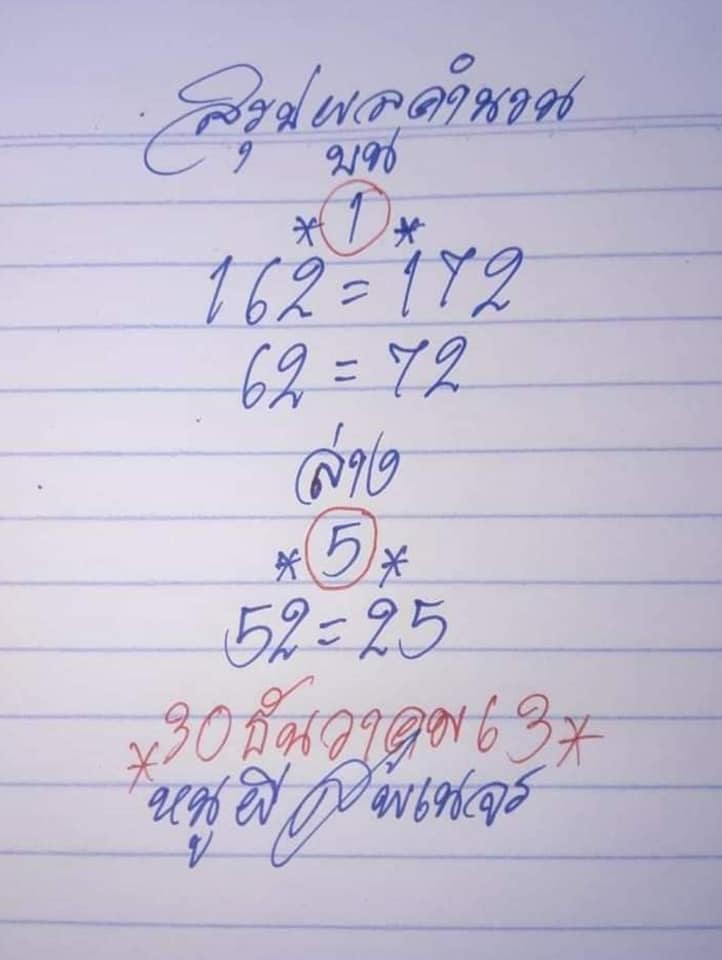 สรุปผลคำนวน
บน
*1*
162=172
62=72
ล่าง
*5*
52=25
*30ธันวาคม63*
หนูผี พเนจร